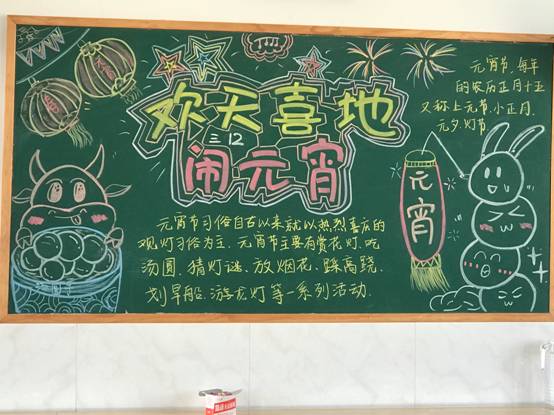 欢天喜地
三12
闹元宵
元宵节,每年
的农历正月十五
又称上元节.小正月.
元夕.灯节
元宵
元宵节习俗自古以来就以热烈喜庆的
观灯习俗为主.元宵节主要有赏花灯.吃
汤圆.猜灯谜、放烟花、踩高跷、
划旱船.游龙灯等一系列活动.